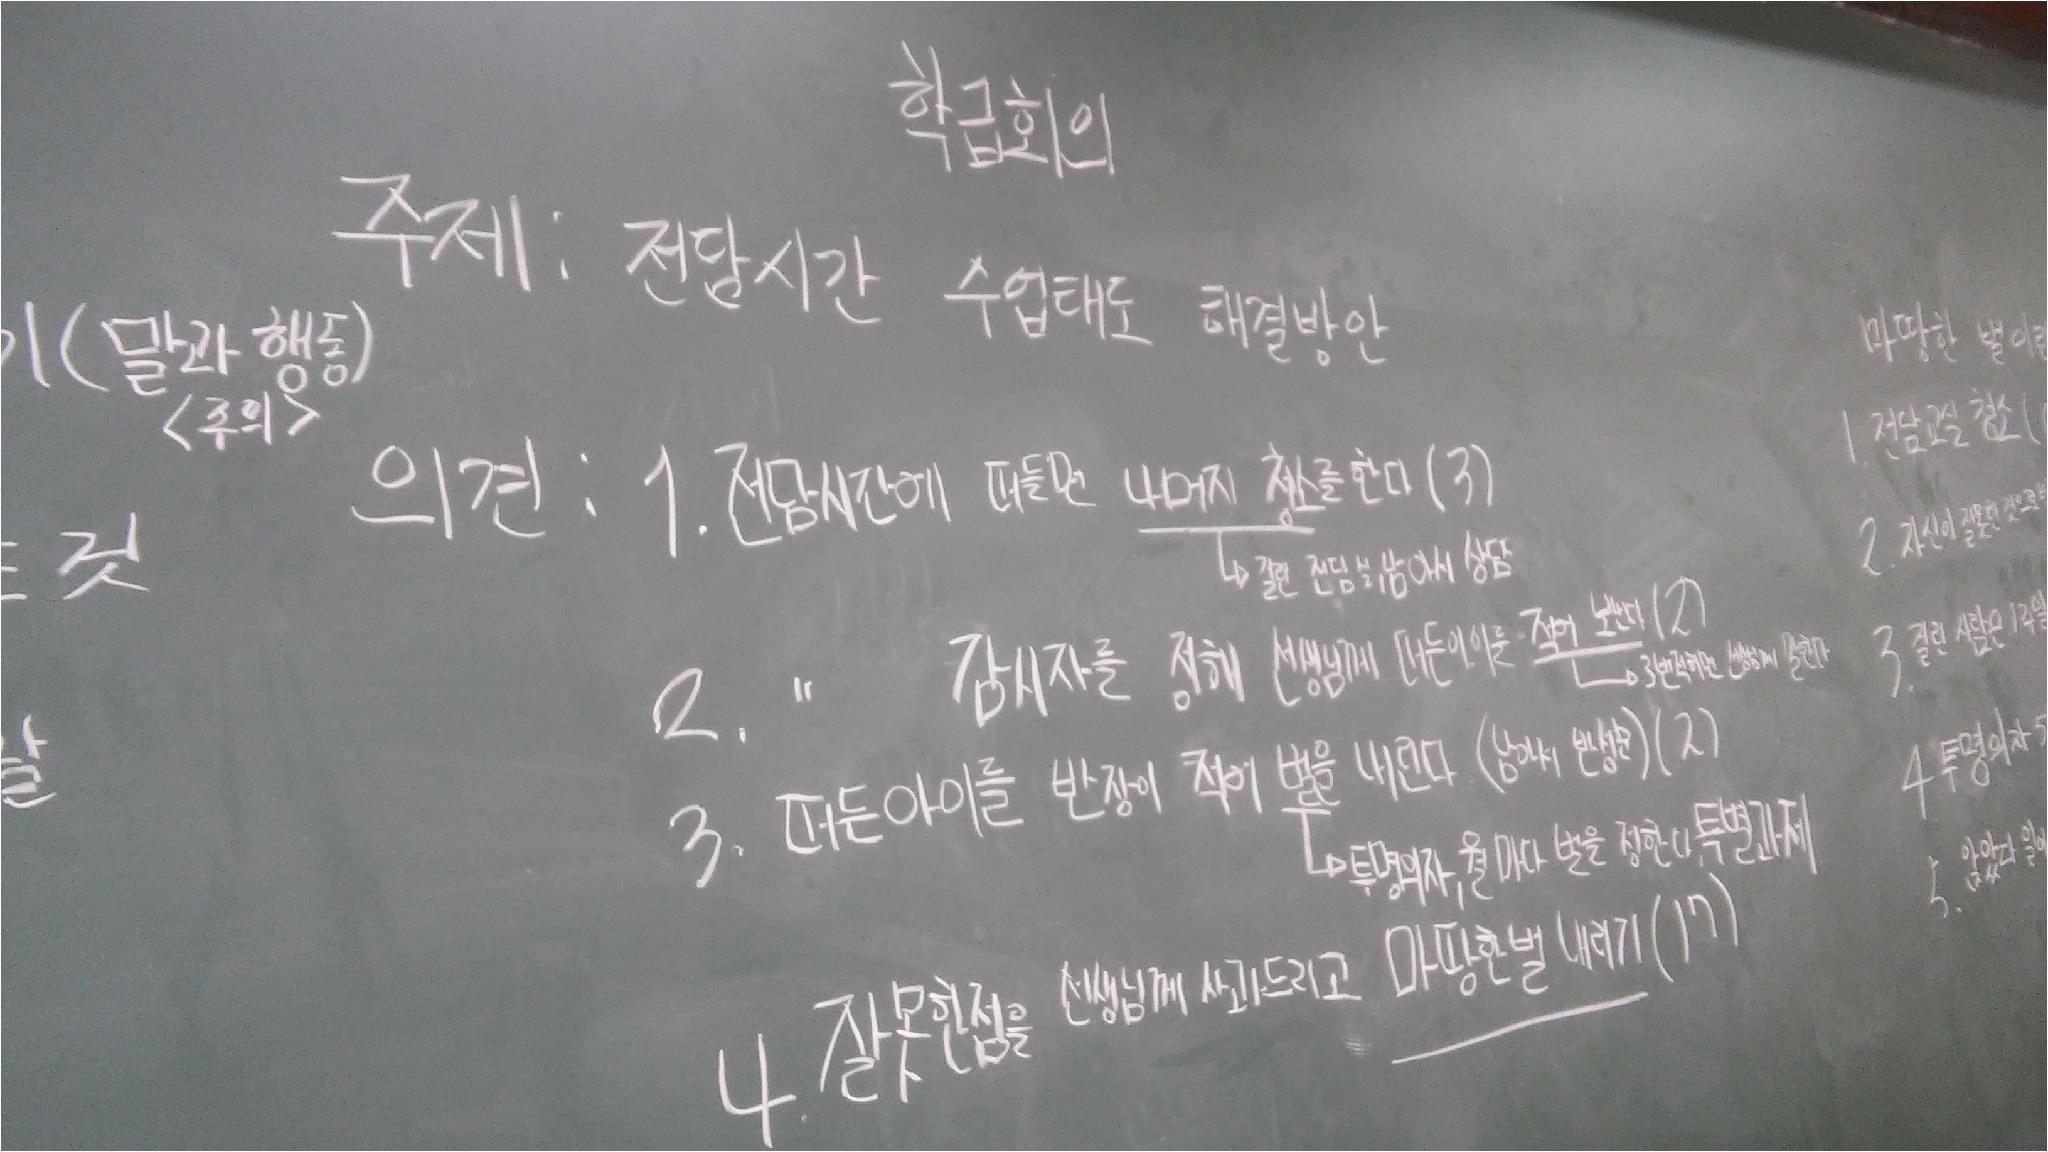 학급회의
주제: 전담시간 수업태도 해결방안
의견: 1. 전담시간에 떠들면 나머지 청소를 한다 (3)
↳ 걸린 전담 남아서 상담
2. " 감시자를 정해 선생님께 떠든아이를 적어 보낸다 (2)
↳ 3번적히면 선생님께 말한다
3. 떠든아이를 반장이 적어 벌을 내린다 (남아서 반성문) (2)
↳ 투명의자, 월마다 벌을 정한다, 특별과제
4. 잘못한점을 선생님께 사과드리고 마땅한벌 내리기 (17)
기 (말과 행동)
<주의>
릿
할
마땅한 벌이란
1. 전담교실 청소 (
2. 자신이 잘못한것으로
3. 걸린 사람은 1주일
4 투명의자 5
5.